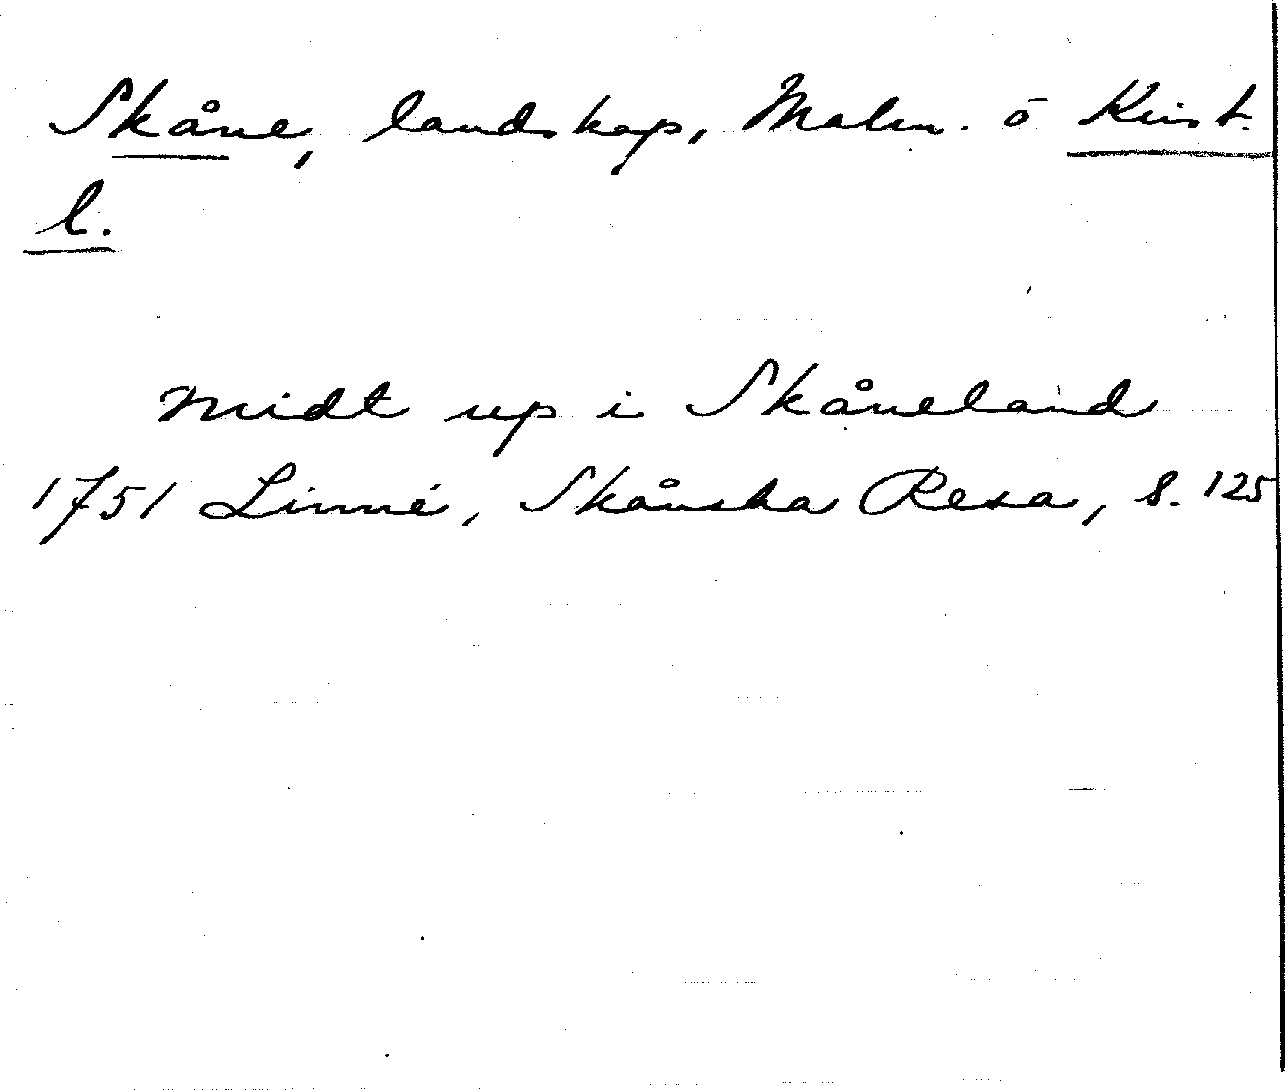 Skåne, landskap, Malm. o Krist.
l.
midt up i Skåneland
1751 Linné, Skånska Resa, s. 125